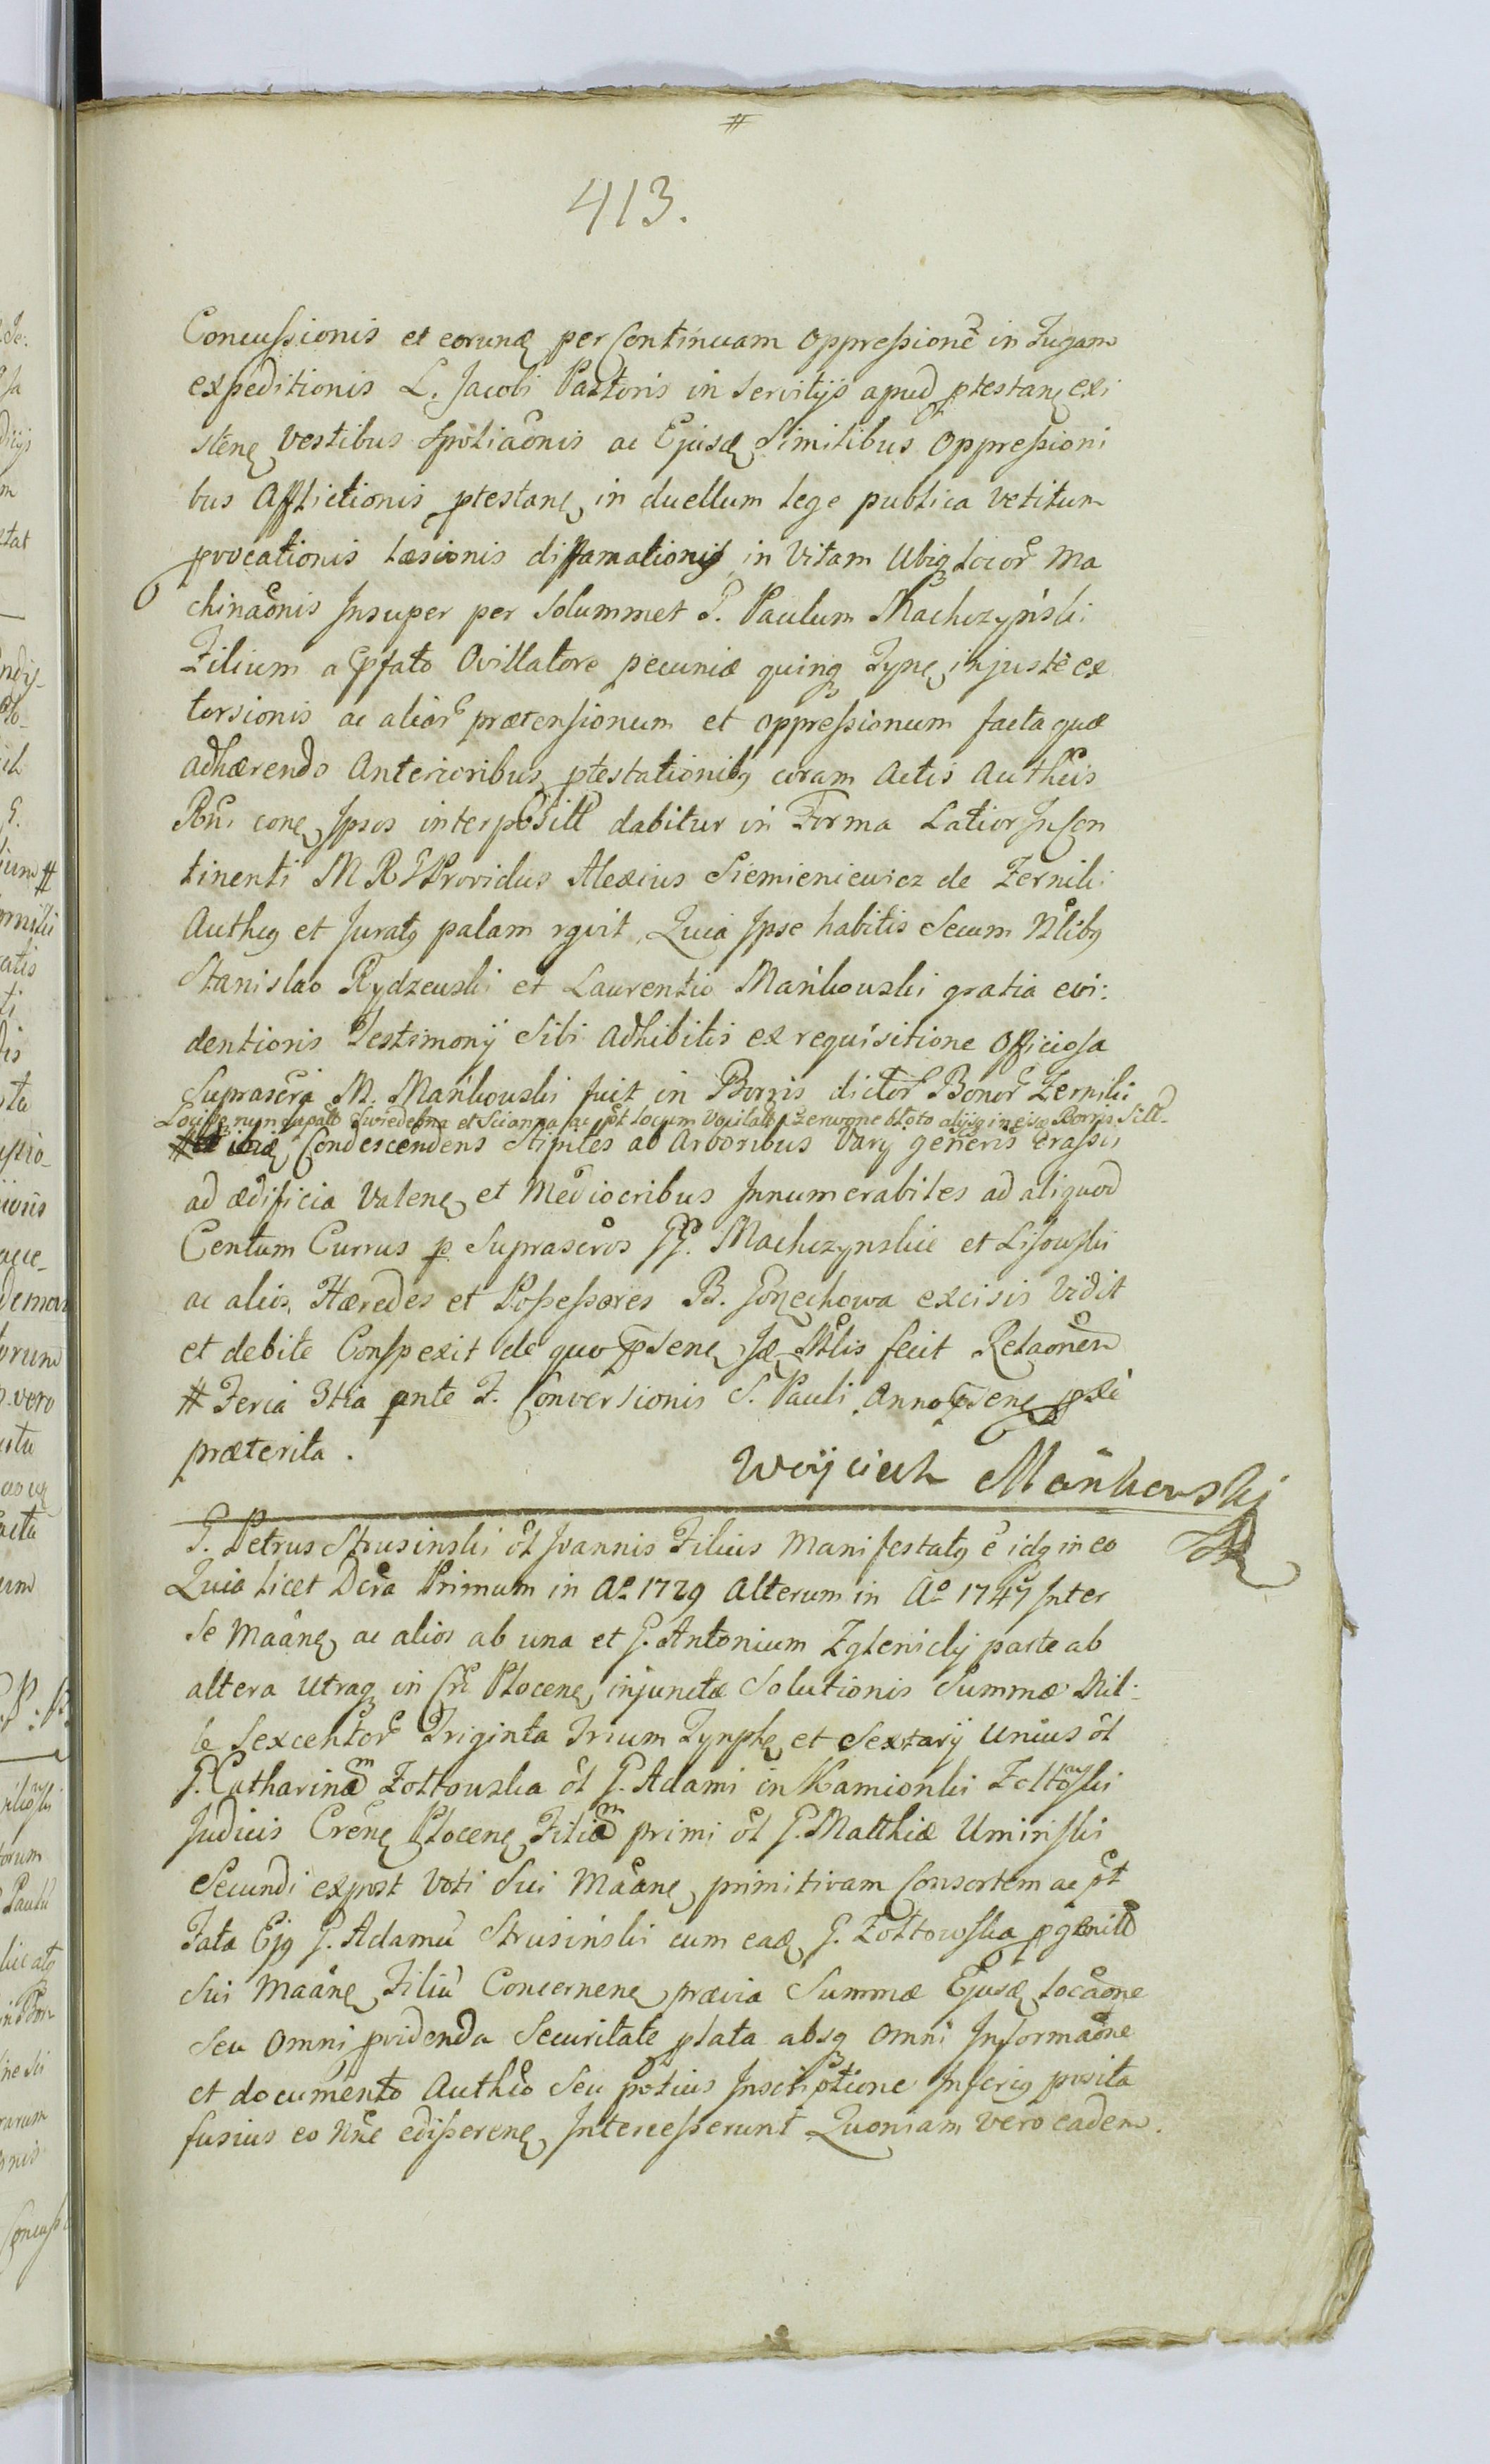 #
413.
Concussionis et eorund per Continuam oppressione in Fugam
expeditionis L. Jacobi Pastoris in Servitijs apud ptestane exi
stene Vestibus Spoliaõnis ac Ejusd Similibus Oppressioni
bus Afflictionis ptestane in duellum lege publica vetitum
provocationis læsionis diffamationis in Vitam Ubiq locor Ma
chinaõnis Insuper per Solummet G. Paulum Machczyński
Filium a pfato Ovillatore pecuniæ quinq Tyne injuste ex
torsionis ac alior prætensionum et oppressionum facta quæ
adhærendo Anterioribus ptestationibq coram Actis Authcis
Rñi cone Ipsos interpositt dabitur in Forma Latior In Con
tinenti M R G Providus Alexius Siemieniewicz de Zernik
Autheq et Juratq palam rgvit, Quia Ipse habitis Secum Nlibq
Stanislao Rydzewski et Laurentio Mańkowski gratia evi:
dentioris Testimonij Sibi Adhibitis ex requisitione Officiosa
Suprascra M. Mańkowski fuit in Borris dictor Bonor Zerniki
Locum Zerwone bloto alijsq in ejusd Borris Sitt
# Condescendens Stipites ab Arboribus Varij generis Crassis
ad ædificia Valene et Mediocribus Innumerabiles ad aliquod
Centum Currus p Suprascros GG. Machczynskie et Lisowski
ac alios Hæredes et Possessores B. Gorzechowa excisis Vidit
et debite Conspexit de quo pstene Jd Mlis fecit Relaõnem
# Feria 3tia ante F. Conversionis S. Pauli Anno psene pxi
præterita.
Woÿciech Mańkowski
G. Petrus Strusinski ol Joannis Filius Manifestatq e idq in eo
Quia licet Dcra Primum in Aº 1729 Alterum in Aº 1747 Inter
Se Maãne ac alios ab una et G. Antonium Zglenicki parte ab
altera utraq in Cri Plocene injunctæ Solutionis Summæ Mil:
le Sexcentor Triginta Trium Tymphe et Sextarij Unius ol
G. Catharinam Zoltowska ol G. Adami in Kamionki Zoltowski
Judicis Crene Plocene Filiam primi ol G. Matthiæ Uminski
Secundi expost Voti Sui Maãne primitivam Consortem ac pt
Fata Ejq G. Adamu Strusiński cum ead G. Zoltowska pgenitt
Sui Maãne Filiu Concernene prævia Summæ Ejusd locaõne
Seu Omni pvidenda Securitate plata absq Omni Informaõne
et documento Authco Seu potius Inscriptione Inferiq posita
fusius eo Nñe edisserene Intercesserunt Quoniam vero eadem.